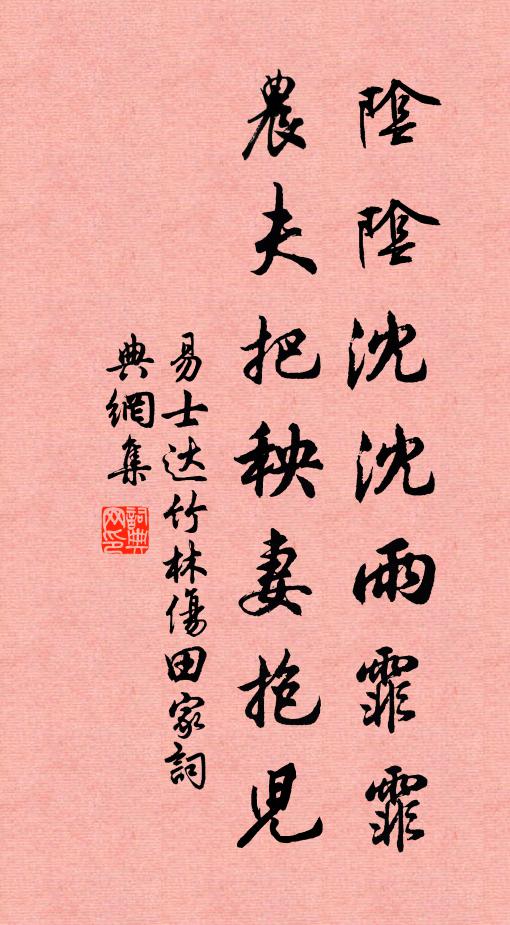 陰陰沈沈雨霏霏
農夫把秧妻抱児
易士达竹林傷田家詞
典網集
詞典网印